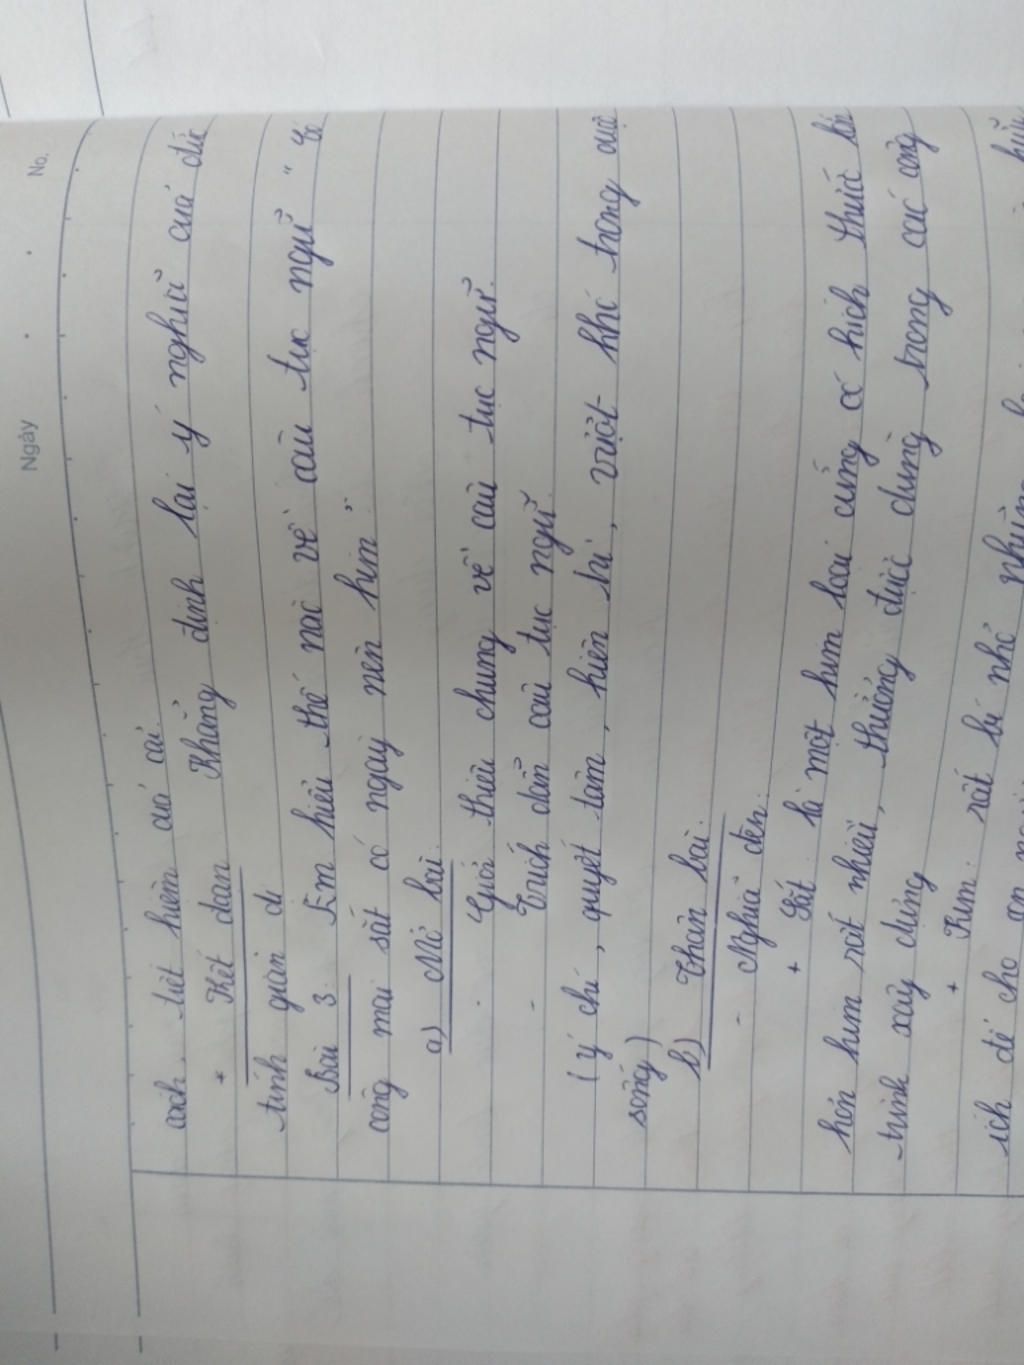 Ngày . . No.
cách tiết kiệm của cải.
* Kết đoạn Khẳng định lại ý nghĩa của đức
tính giản dị
Bài 3: Em hiểu thế nào về câu tục ngữ "Có
công mài sắt có ngày nên kim"
a) Mở bài:
- Giới thiệu chung về câu tục ngữ.
- Trích dẫn câu tục ngữ.
(ý chí, quyết tâm, kiên trì, vượt khó trong cuộc
sống)
b) Thân bài:
- Nghĩa đen:
+ Sắt: là một kim loại cứng có kích thước lớn
hơn kim rất nhiều, thường được dùng trong các công
trình xây dựng
+ Kim: rất bé nhỏ nhưng
ích để cho